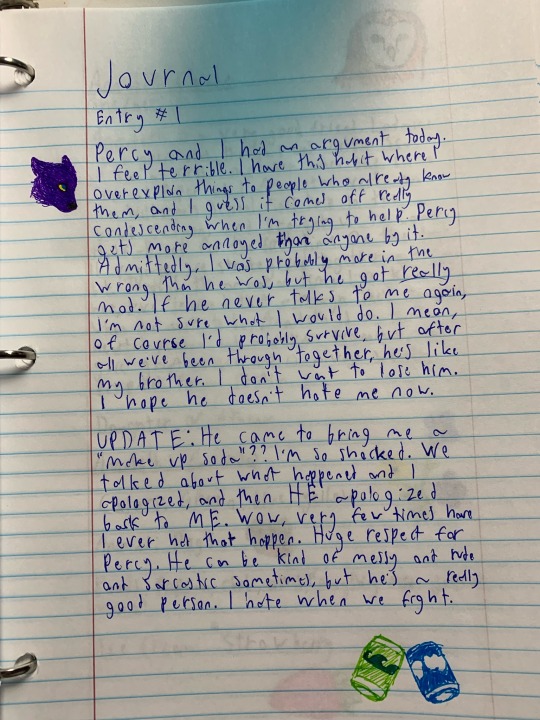 Journal
Entry #1
Percy and I had an argument today.
I feel terrible. I have this habit where I
overexplain things to people who already know
them, and I guess it comes off really
condescending when I'm trying to help. Percy
gets more annoyed than anyone by it.
Admittedly, I was probably more in the
wrong than he was, but he got really
mad. If he never talks to me again,
I'm not sure what I would do. I mean,
of course I'd probably survive, but after
all we've been through together, he's like
my brother. I don't want to lose him.
I hope he doesn't hate me now.
UPDATE: He came to bring me a
"make up soda"?? I'm so shocked. We
talked about what happened and I
apologized, and then HE apologized
back to ME. Wow, very few times have
I ever had that happen. Huge respect for
Percy. He can be kind of messy and rude
and sarcastic sometimes, but he's a really
good person. I hate when we fight.